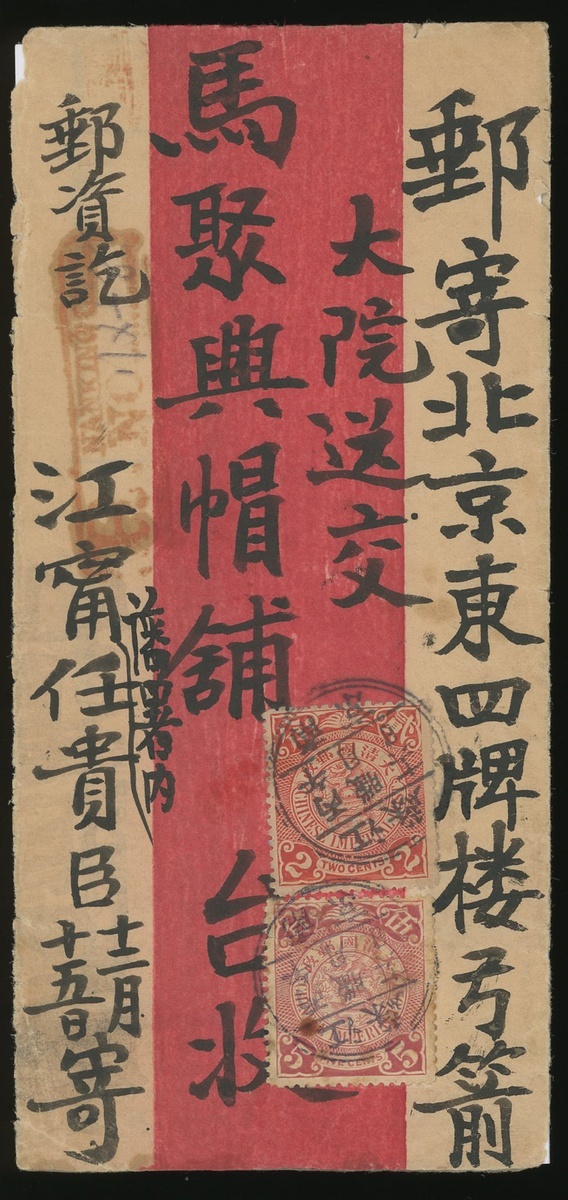 郵寄北京東四牌楼弓箭
大院送交
馬聚興帽舖 台收
郵資訖
江甯藩署内任貴臣十二月十五日寄
2 TWO CENTS 2
5 FIVE CENTS 5